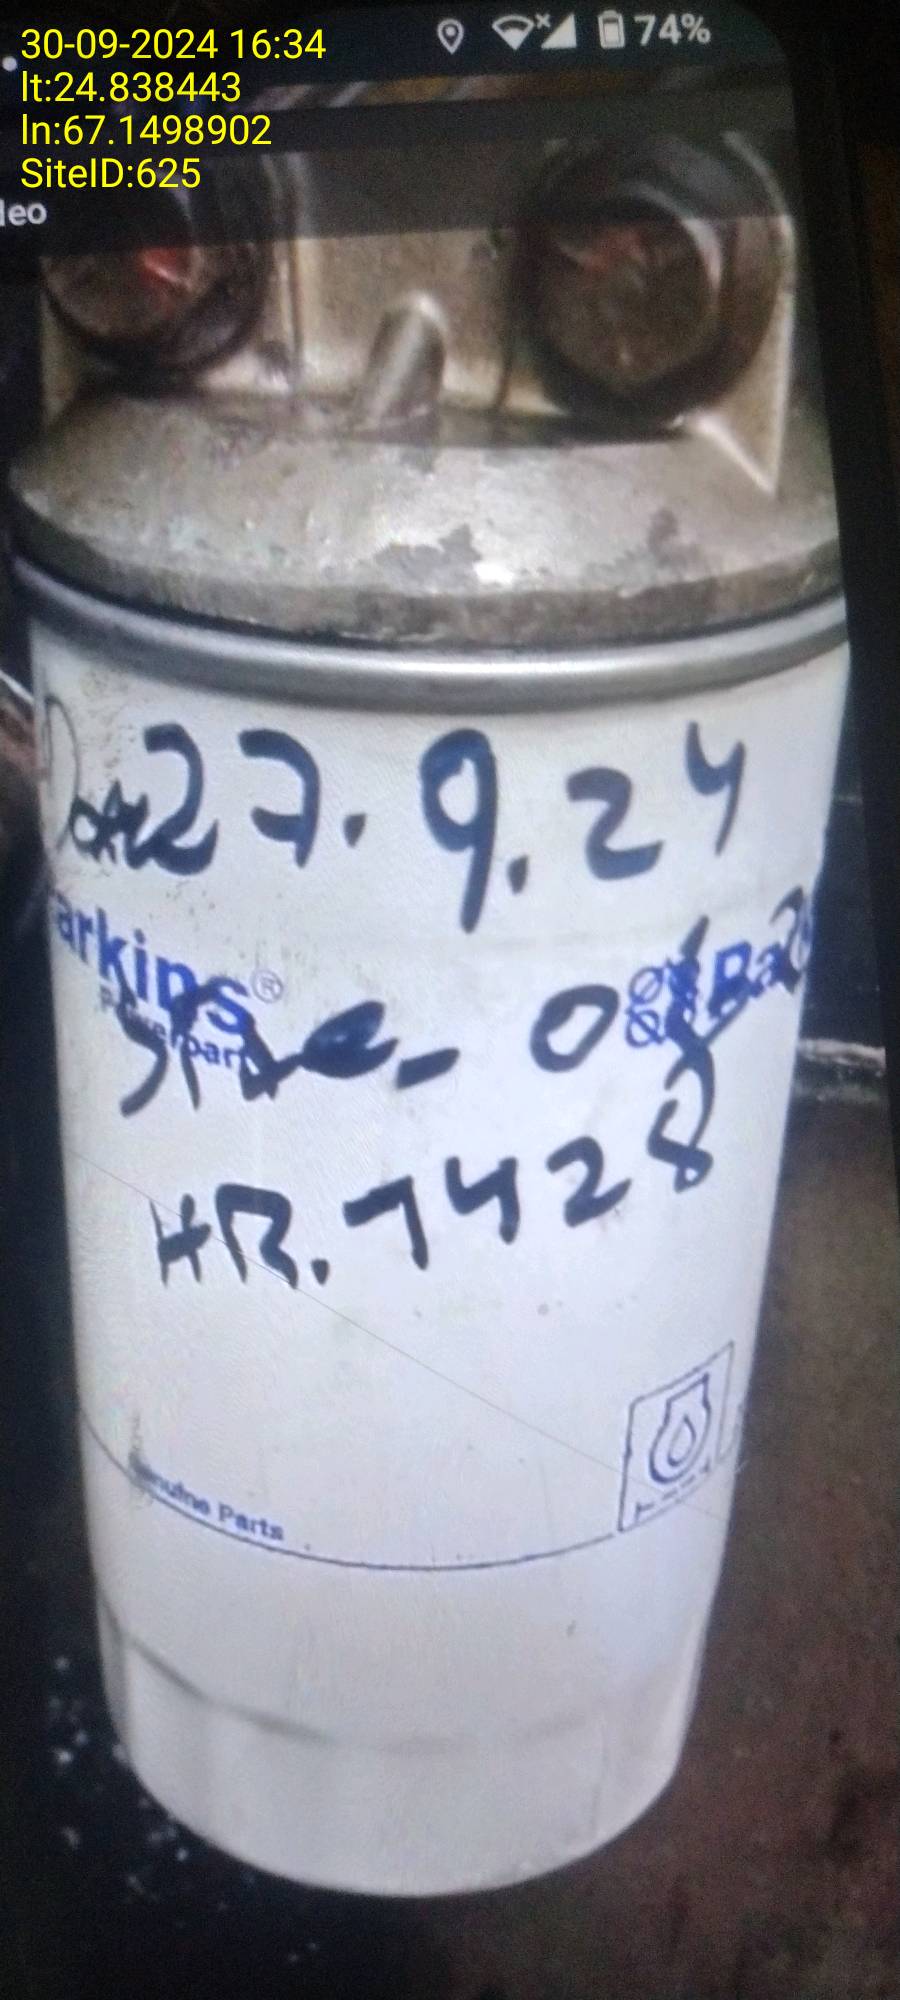 30-09-2024 16:34
74%
lt:24.838443
ln:67.1498902
SiteID:625
leo
Date 27.9.24
arkins®
Site-
HR.7428
Genuine Parts